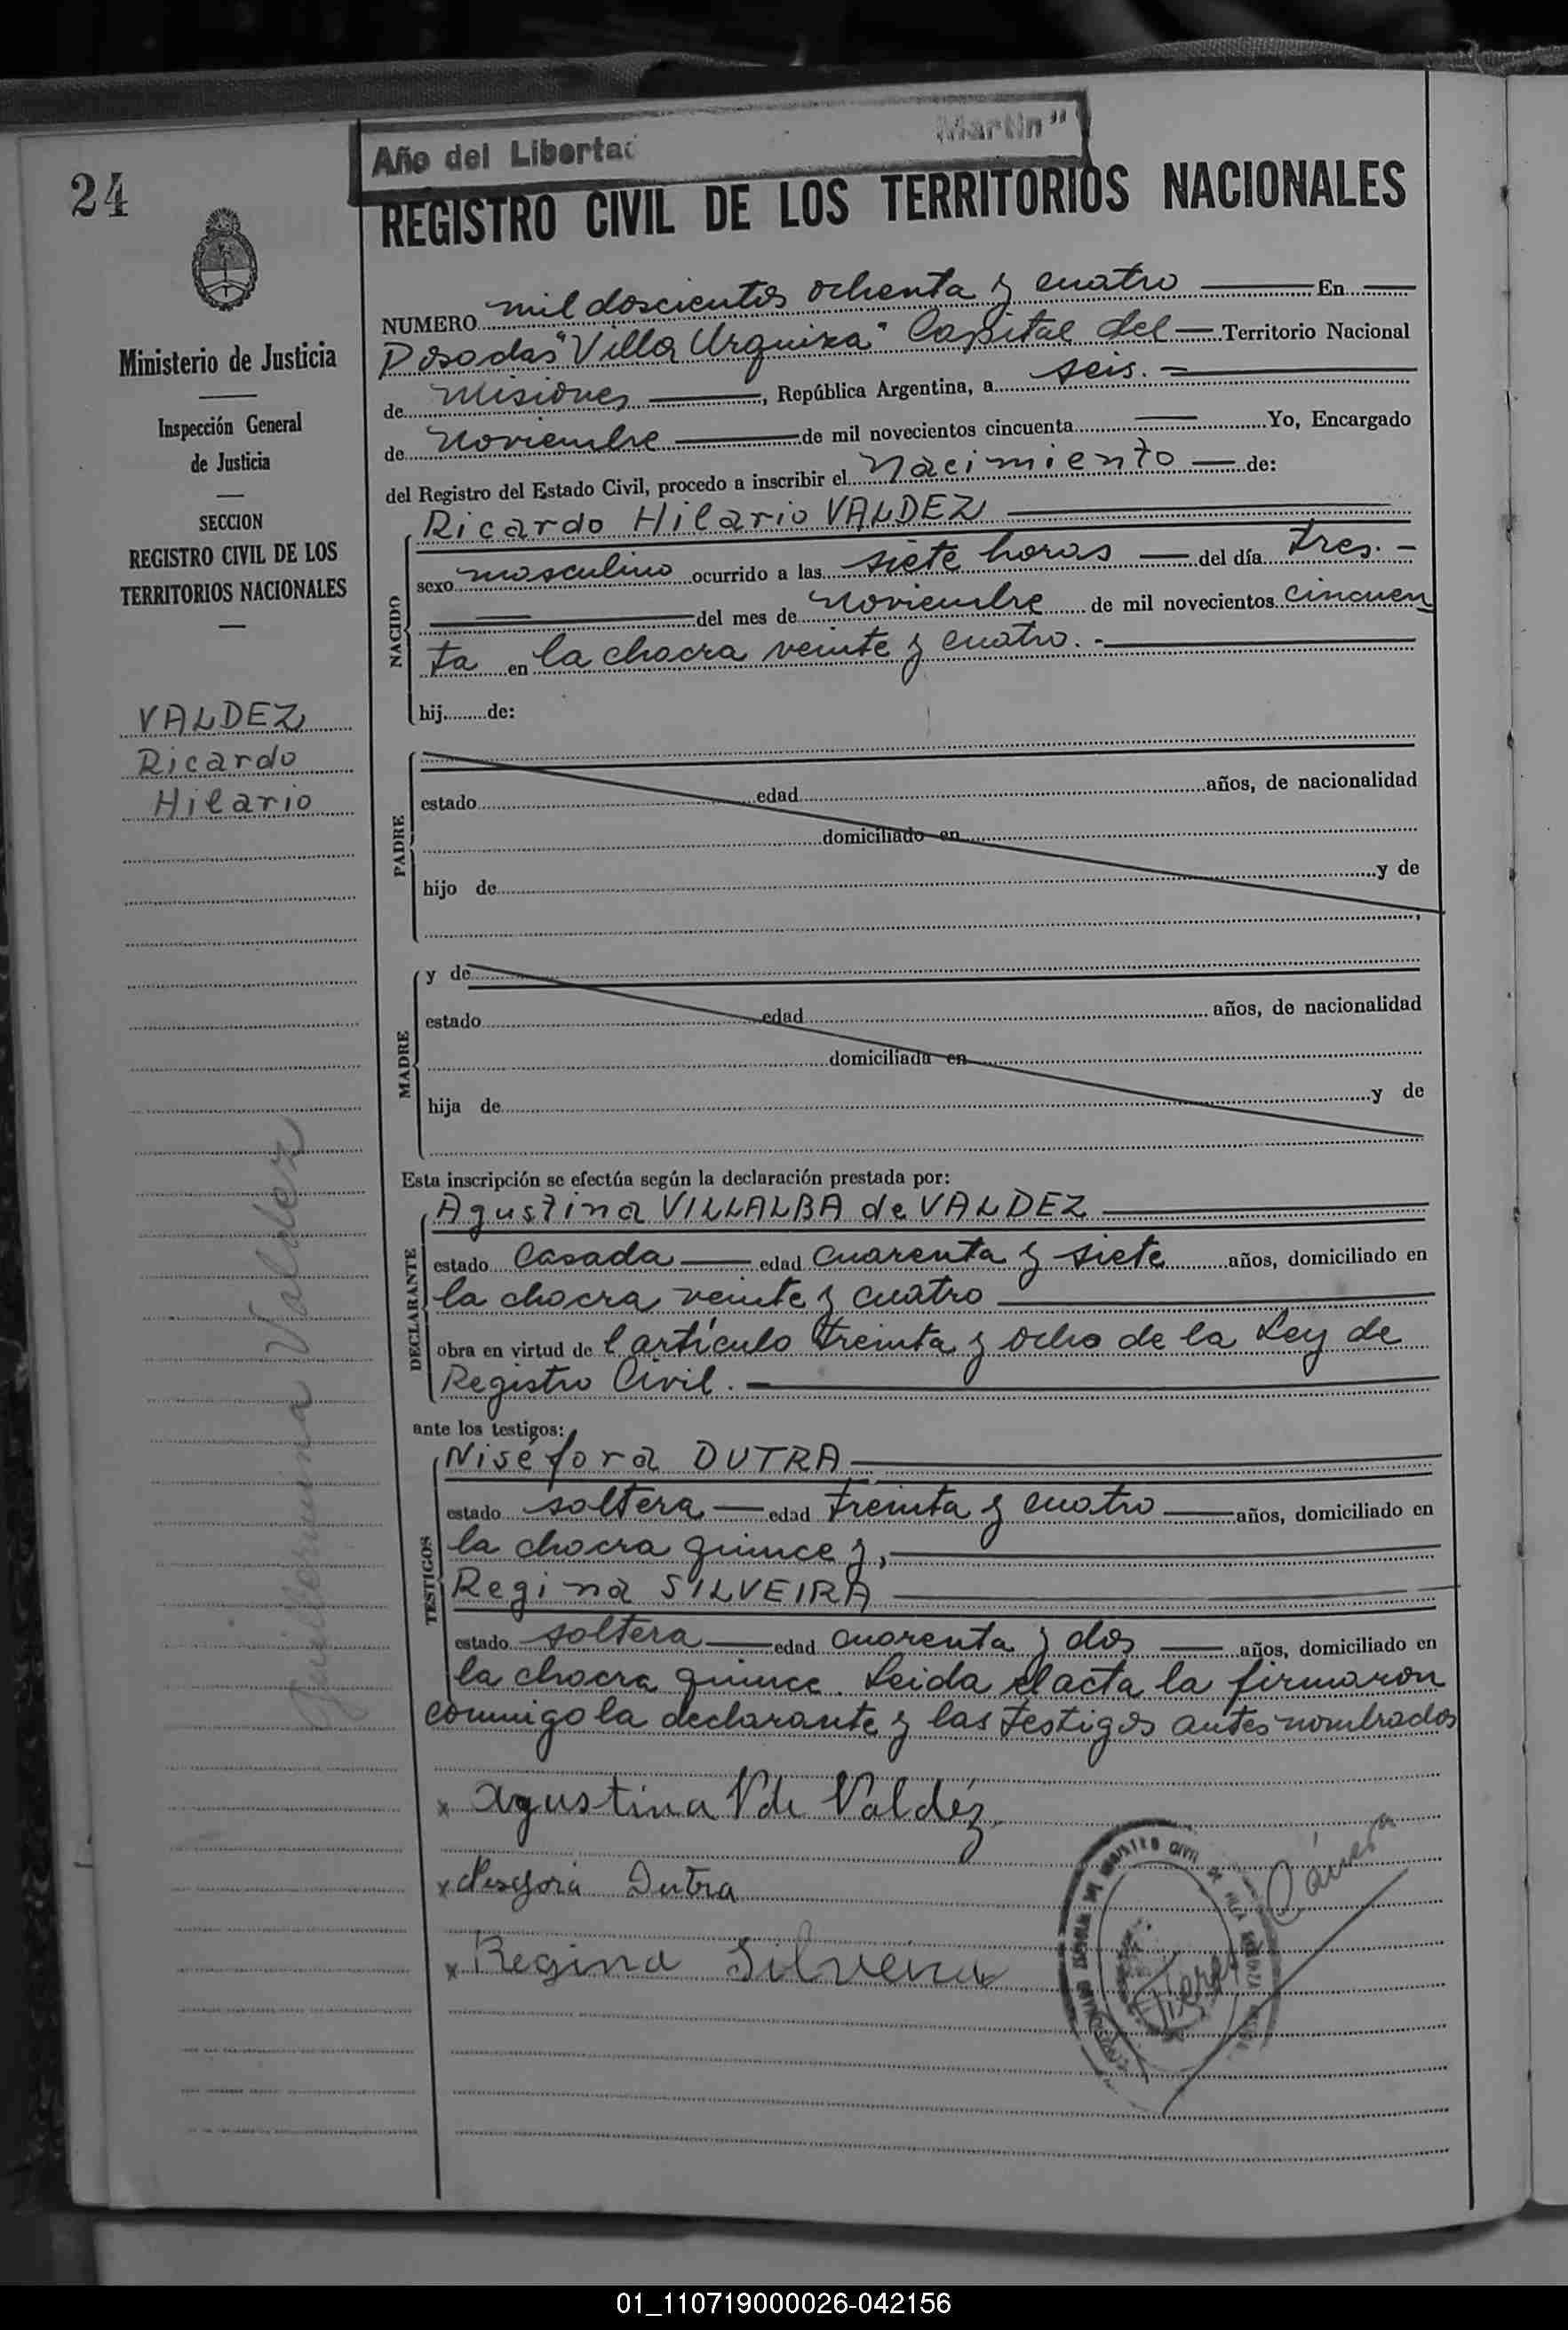 24
Año del Libertad Martín"
REGISTRO CIVIL DE LOS TERRITORIOS NACIONALES
Ministerio de Justicia
Inspección General
de Justicia
SECCION
REGISTRO CIVIL DE LOS
TERRITORIOS NACIONALES
VALDEZ
Ricardo
Hilario
Guillermina Valdez
NUMERO mil doscientos ochenta y cuatro En
Posadas "Villa Urquiza" Capital del Territorio Nacional
de Misiones, República Argentina, a seis.
de Noviembre de mil novecientos cincuenta Yo, Encargado
del Registro del Estado Civil, procedo a inscribir el Nacimiento de:
NACIDO
Ricardo Hilario VALDEZ
sexo masculino ocurrido a las siete horas del día tres.
del mes de Noviembre de mil novecientos cincuen
ta en la chacra veinte y cuatro.
hij de:
PADRE
estado edad años, de nacionalidad
domiciliado en
hijo de y de
MADRE
y de
estado edad años, de nacionalidad
domiciliada en
hija de y de
Esta inscripción se efectúa según la declaración prestada por:
DECLARANTE
Agustina VILLALBA de VALDEZ
estado Casada edad cuarenta y siete años, domiciliado en
la chacra veinte y cuatro
obra en virtud de l artículo treinta y ocho de la Ley de
Registro Civil.
ante los testigos:
TESTIGOS
Niséfora DUTRA
estado soltera edad treinta y cuatro años, domiciliado en
la chacra quince y,
Regina SILVEIRA
estado soltera edad cuarenta y dos años, domiciliado en
la chacra quince. Leida el acta la firmaron
conmigo la declarante y las testigos antes nombrados
x Agustina V de Valdéz
x Dutra
x Regina Silveira
01_110719000026-042156